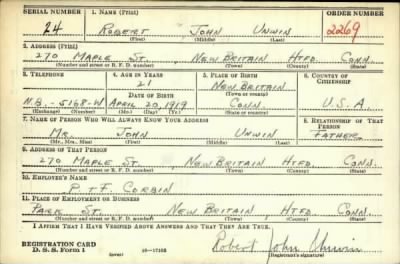 SERIAL NUMBER 1. NAME (Print) ORDER NUMBER
24 ROBERT JOHN UNWIN 2269
(First) (Middle) (Last)
2. ADDRESS (Print)
270 MAPLE ST. NEW BRITAIN HTFD. CONN.
(Number and street or R. F. D. number) (Town) (County) (State)
3. TELEPHONE 4. AGE IN YEARS 5. PLACE OF BIRTH 6. COUNTRY OF
CITIZENSHIP
21 NEW BRITAIN
DATE OF BIRTH (Town or county)
N.B.-5168-W APRIL 20, 1919 CONN. U.S.A
(Exchange) (Number) (Mo.) (Day) (Yr.) (State or country)
7. NAME OF PERSON WHO WILL ALWAYS KNOW YOUR ADDRESS 8. RELATIONSHIP OF THAT
PERSON
MR. JOHN UNWIN FATHER
(Mr., Mrs., Miss) (First) (Middle) (Last)
9. ADDRESS OF THAT PERSON
270 MAPLE ST. NEW BRITAIN HTFD. CONN.
(Number and street or R. F. D. number) (Town) (County) (State)
10. EMPLOYER'S NAME
P. & F. CORBIN
11. PLACE OF EMPLOYMENT OR BUSINESS
PARK ST. NEW BRITAIN, HTFD. CONN.
(Number and street or R. F. D. number) (Town) (County) (State)
I AFFIRM THAT I HAVE VERIFIED ABOVE ANSWERS AND THAT THEY ARE TRUE.
REGISTRATION CARD
D. S. S. Form 1 (over) 16—17105 Robert John Unwin
(Registrant's signature)